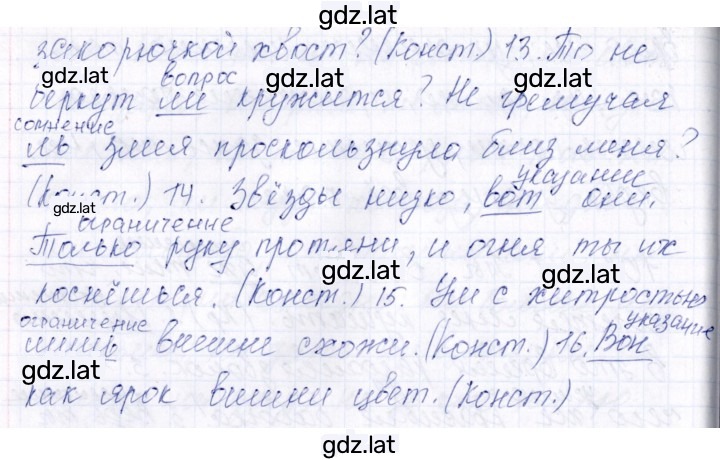 gdz.lat
закорючкой хвост? (Конст.) 13. То не
gdz.lat вопрос gdz.lat gdz.lat
беркут ли кружится? Не гремучая
сомнение
ль змея проскользнула близ меня?
указание
(Конст.) 14. Звёзды низко, вот они.
gdz.lat gdz.lat gdz.lat
ограничение
Только руку протяни, и огня ты их
gdz.lat gdz.lat
коснёшься. (Конст.) 15. Ум с хитростью
ограничение указание
лишь внешне схожи. (Конст.) 16. Вон
gdz.lat gdz.lat
как ярок вишни цвет. (Конст.)
gdz.lat